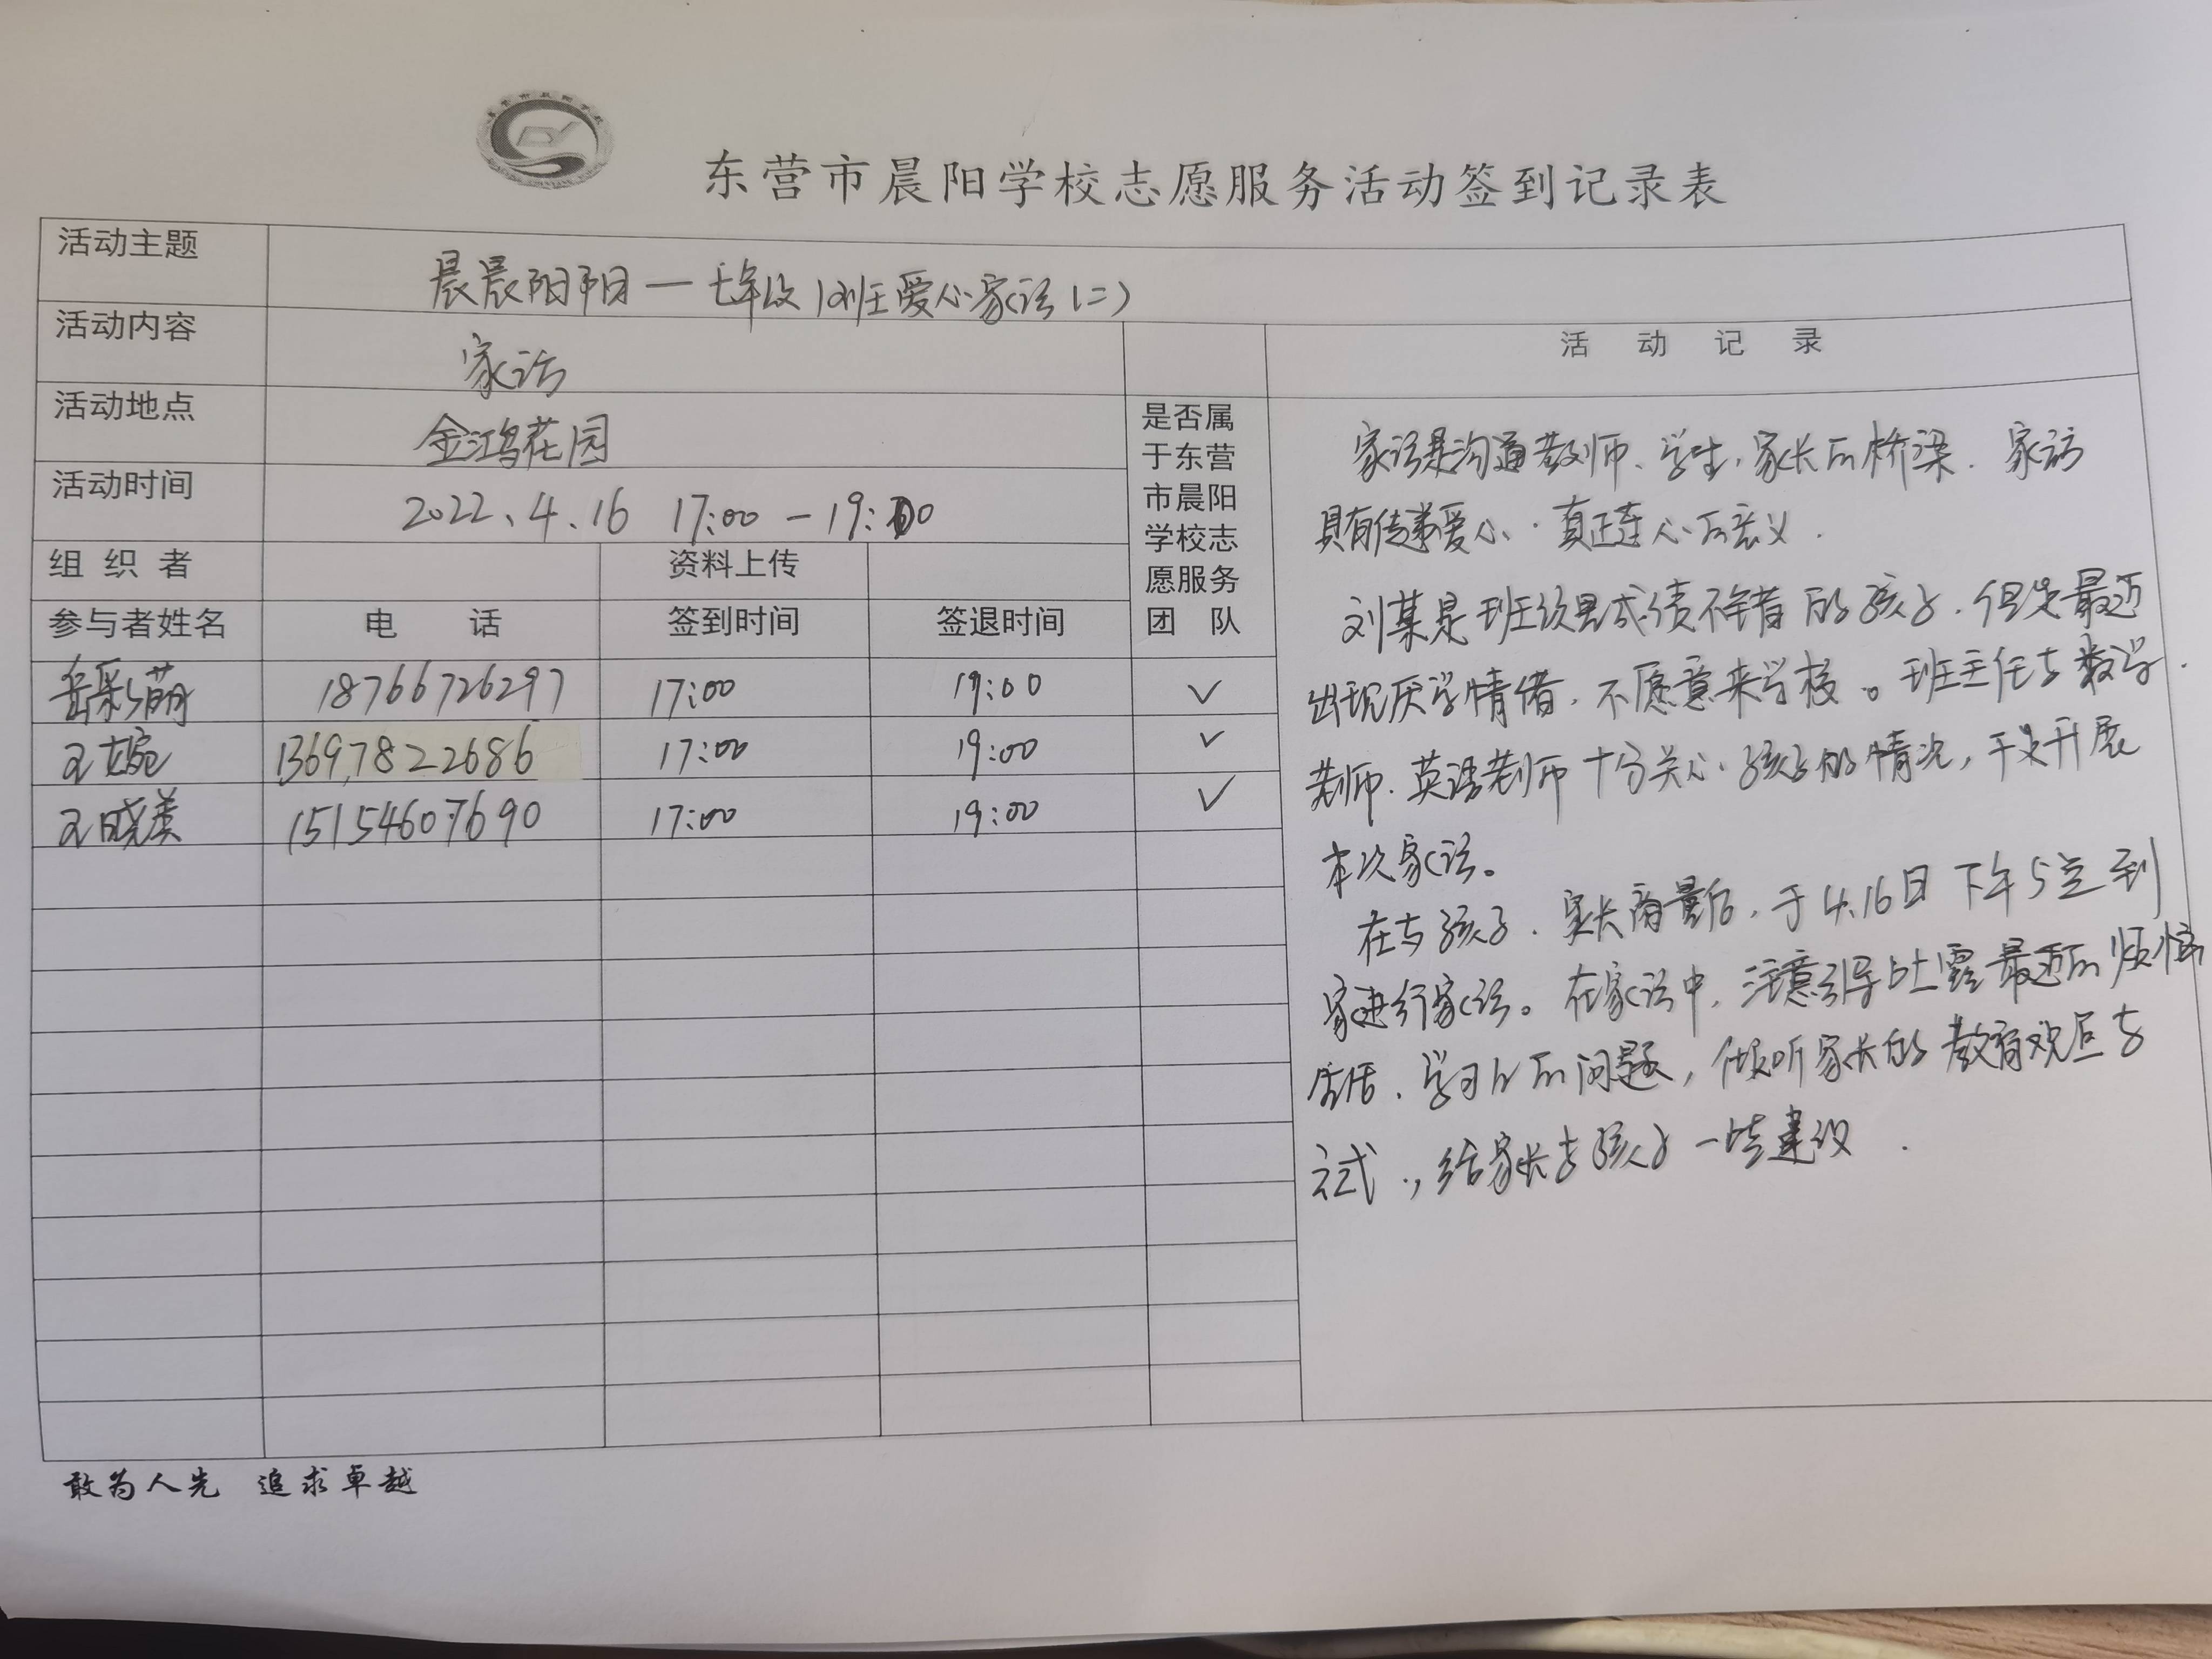 东营市晨阳学校志愿服务活动签到记录表
活动主题 晨晨阳阳—七年级1班爱心家访(二)
活动内容 家访
活动地点 金鸿花园
活动时间 2022.4.16 17:00-19:00
组织者 资料上传
参与者姓名 电话 签到时间 签退时间
是否属
于东营
市晨阳
学校志
愿服务
团队
岳彩萌 18766726297 17:00 19:00 ✓
王婉 13697822686 17:00 19:00 ✓
王晓美 15154607690 17:00 19:00 ✓
活动记录
家访是沟通教师、学生、家长的桥梁.家访
具有传递爱心、真正连心的意义.
刘某是班级里成绩不错的孩子.但是最近
出现厌学情绪,不愿意来学校。班主任与数学
老师.英语老师十分关心孩子的情况,于是开展
本次家访。
在与孩子.家长商量后,于4.16日下午5点到
家进行家访。在家访中,注意引导吐露最近的烦恼
生活、学习上的问题,倾听家长的教育观点与
方式.,给家长与孩子一些建议.
敢为人先 追求卓越